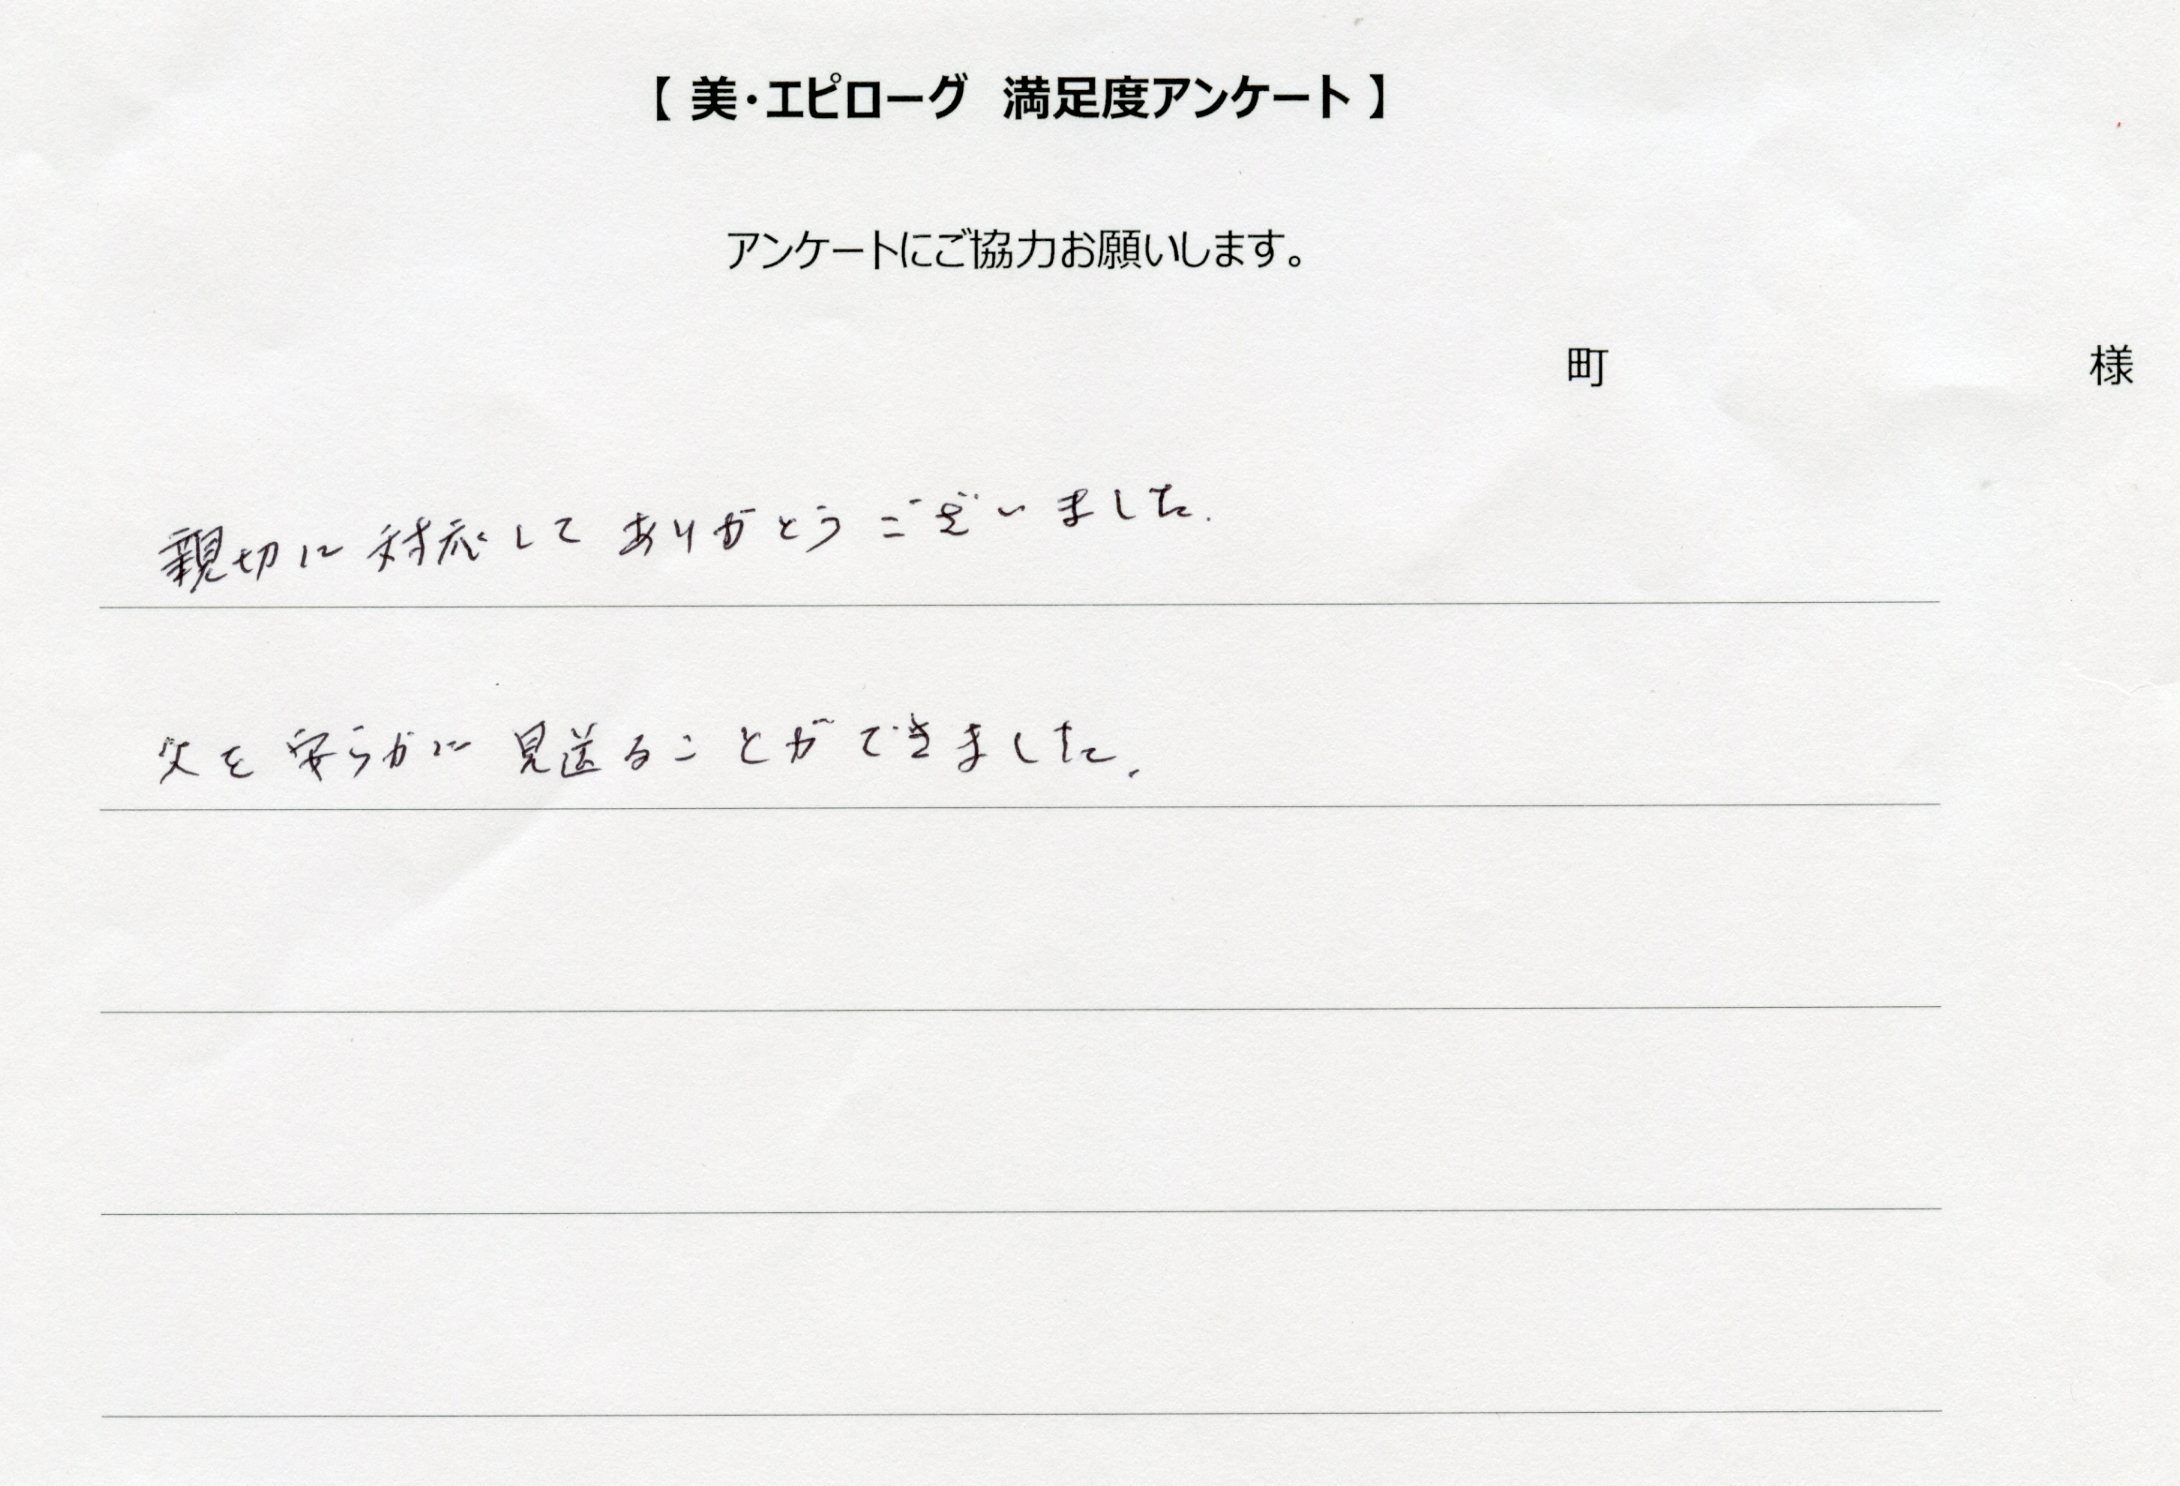 【 美・エピローグ　満足度アンケート 】
アンケートにご協力お願いします。
町　様
親切に対応してありがとうございました.
父を安らかに見送ることができました.